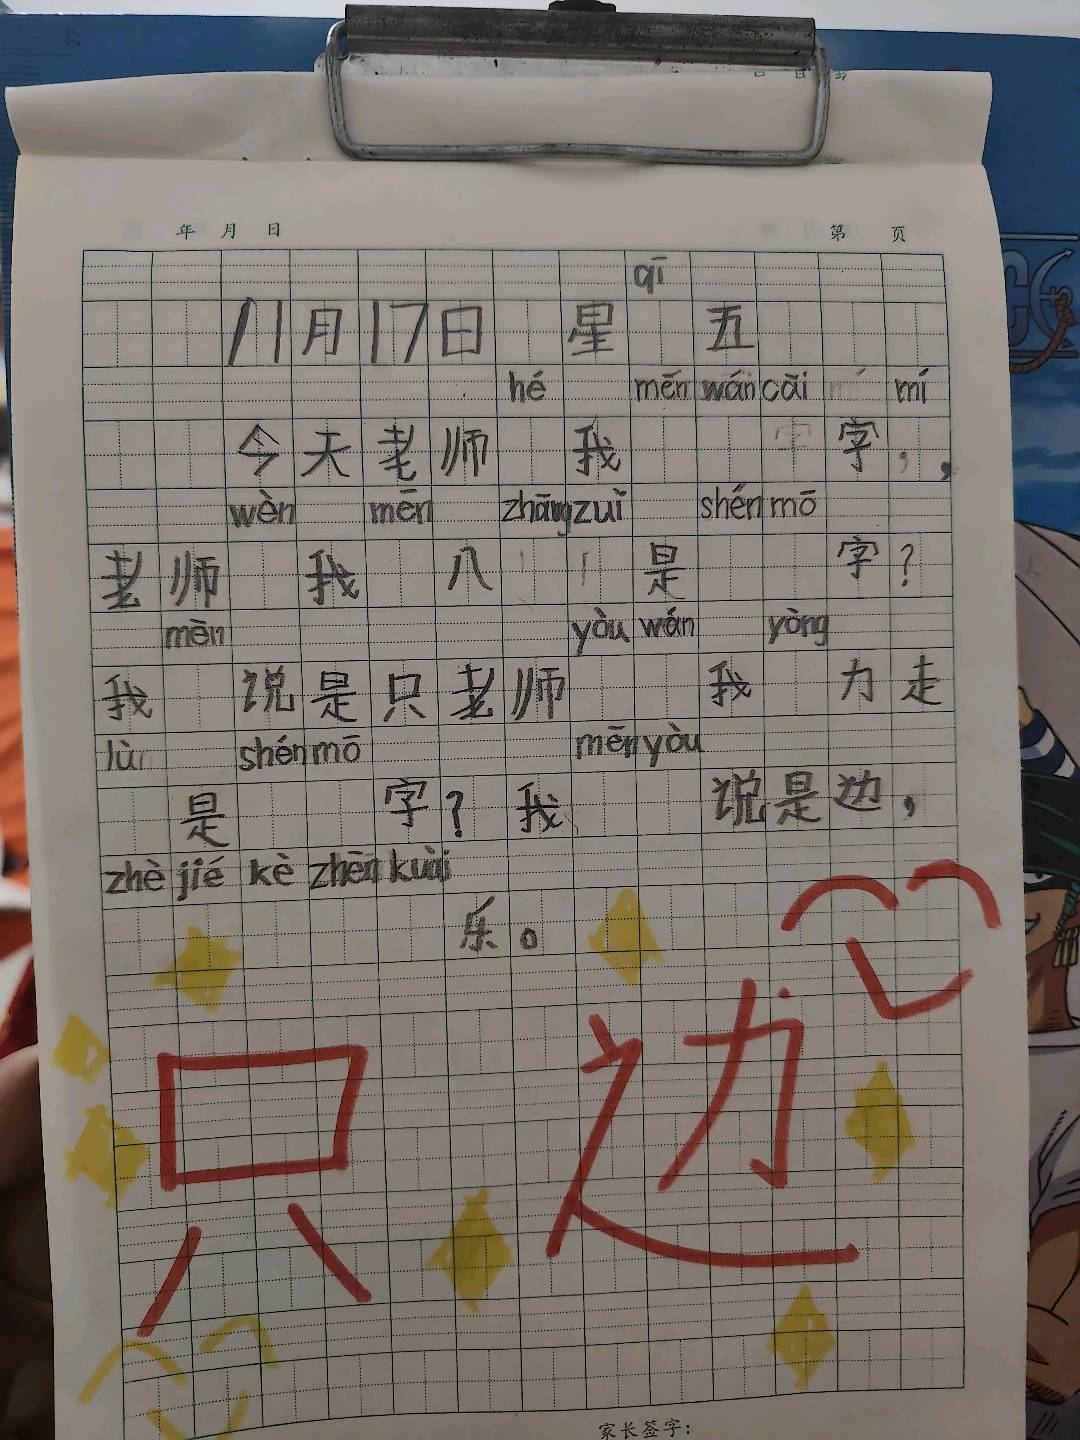 年 月 日 第 页
qī
11月17日 星 五
hé mēn wán cāi mí
今天老师 我 字，
wèn mēn zhāng zuǐ shén mō
老师 我 八 是 字？
mèn yòu wán yòng
我 说是只老师 我 力走
lù shén mō mēn yòu
是 字？我 说是边，
zhè jié kè zhēn kuài
乐。
只 边
家长签字：